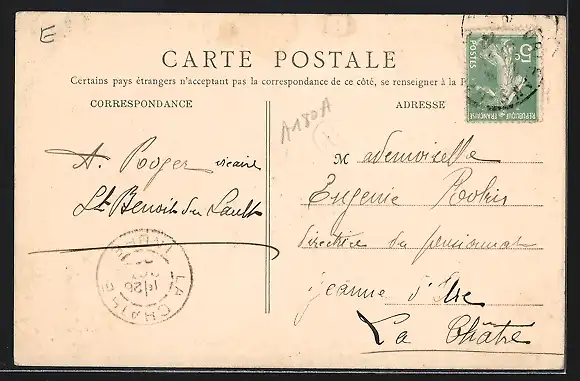 E
CARTE POSTALE
Certains pays étrangers n'acceptant pas la correspondance de ce côté, se renseigner à la P
CORRESPONDANCE
ADRESSE
A180A
5c
POSTES
REPUBLIQUE FRANÇAISE
A. Roger vicaire
St Benoit du Sault
Mademoiselle
Eugenie
Directrice du pensionnat
Jeanne d'Arc
La Châtre
LA CHATRE
INDRE